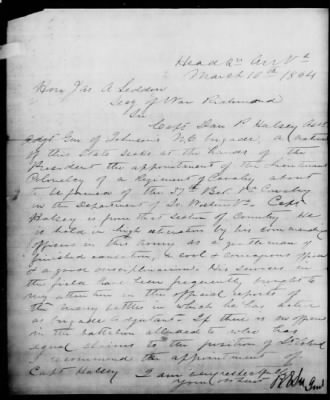 Head Qrs Army
March 10th 1864
Hon Jas. A Seddon
Secy of War Richmond
Sir
Capt. Don P. Halsey Asst
Adjt Gen of Johnson's N.C brigade, a native
of this State seeks at the hands of the
President the appointment of the Lieutenant
Colonelcy of a Regiment of Cavalry about
to be formed of the Bat. Va Cavalry
in the Department of So. Western Va. Capt
Halsey is from that section of Country. He
is held in high estimation by his commanding
officers in this Army as a gentleman of
finished education, a cool & courageous officer
& a good disciplinarian. His services in
the field have been frequently brought to
my attention in the official reports of
the many battles in which he has been
brigade Adjutant. If there is no officer
in the battalion alluded to who has
equal claims to the position of Lt Col
I recommend the appointment of
Capt Halsey I am very respectfully
Your obt Servt R E Lee
Genl